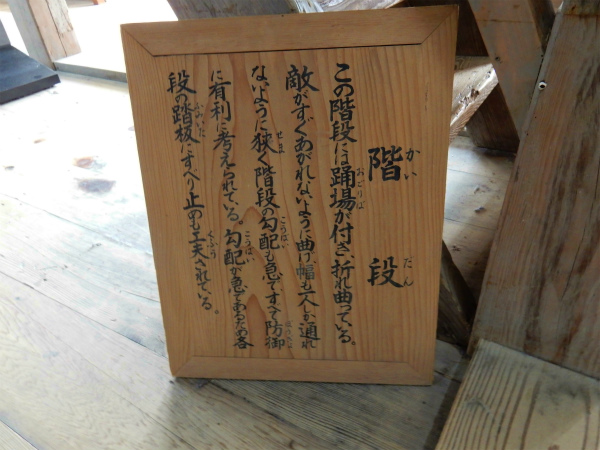 階段
この階段には踊場が付き、折れ曲っている。
敵がすぐあがれないように曲げ、幅も一人しか通れ
ないように狭く階段の勾配も急で、すべて防御
に有利に考えられている。勾配が急であるため各
段の踏板にすべり止めも工夫されている。